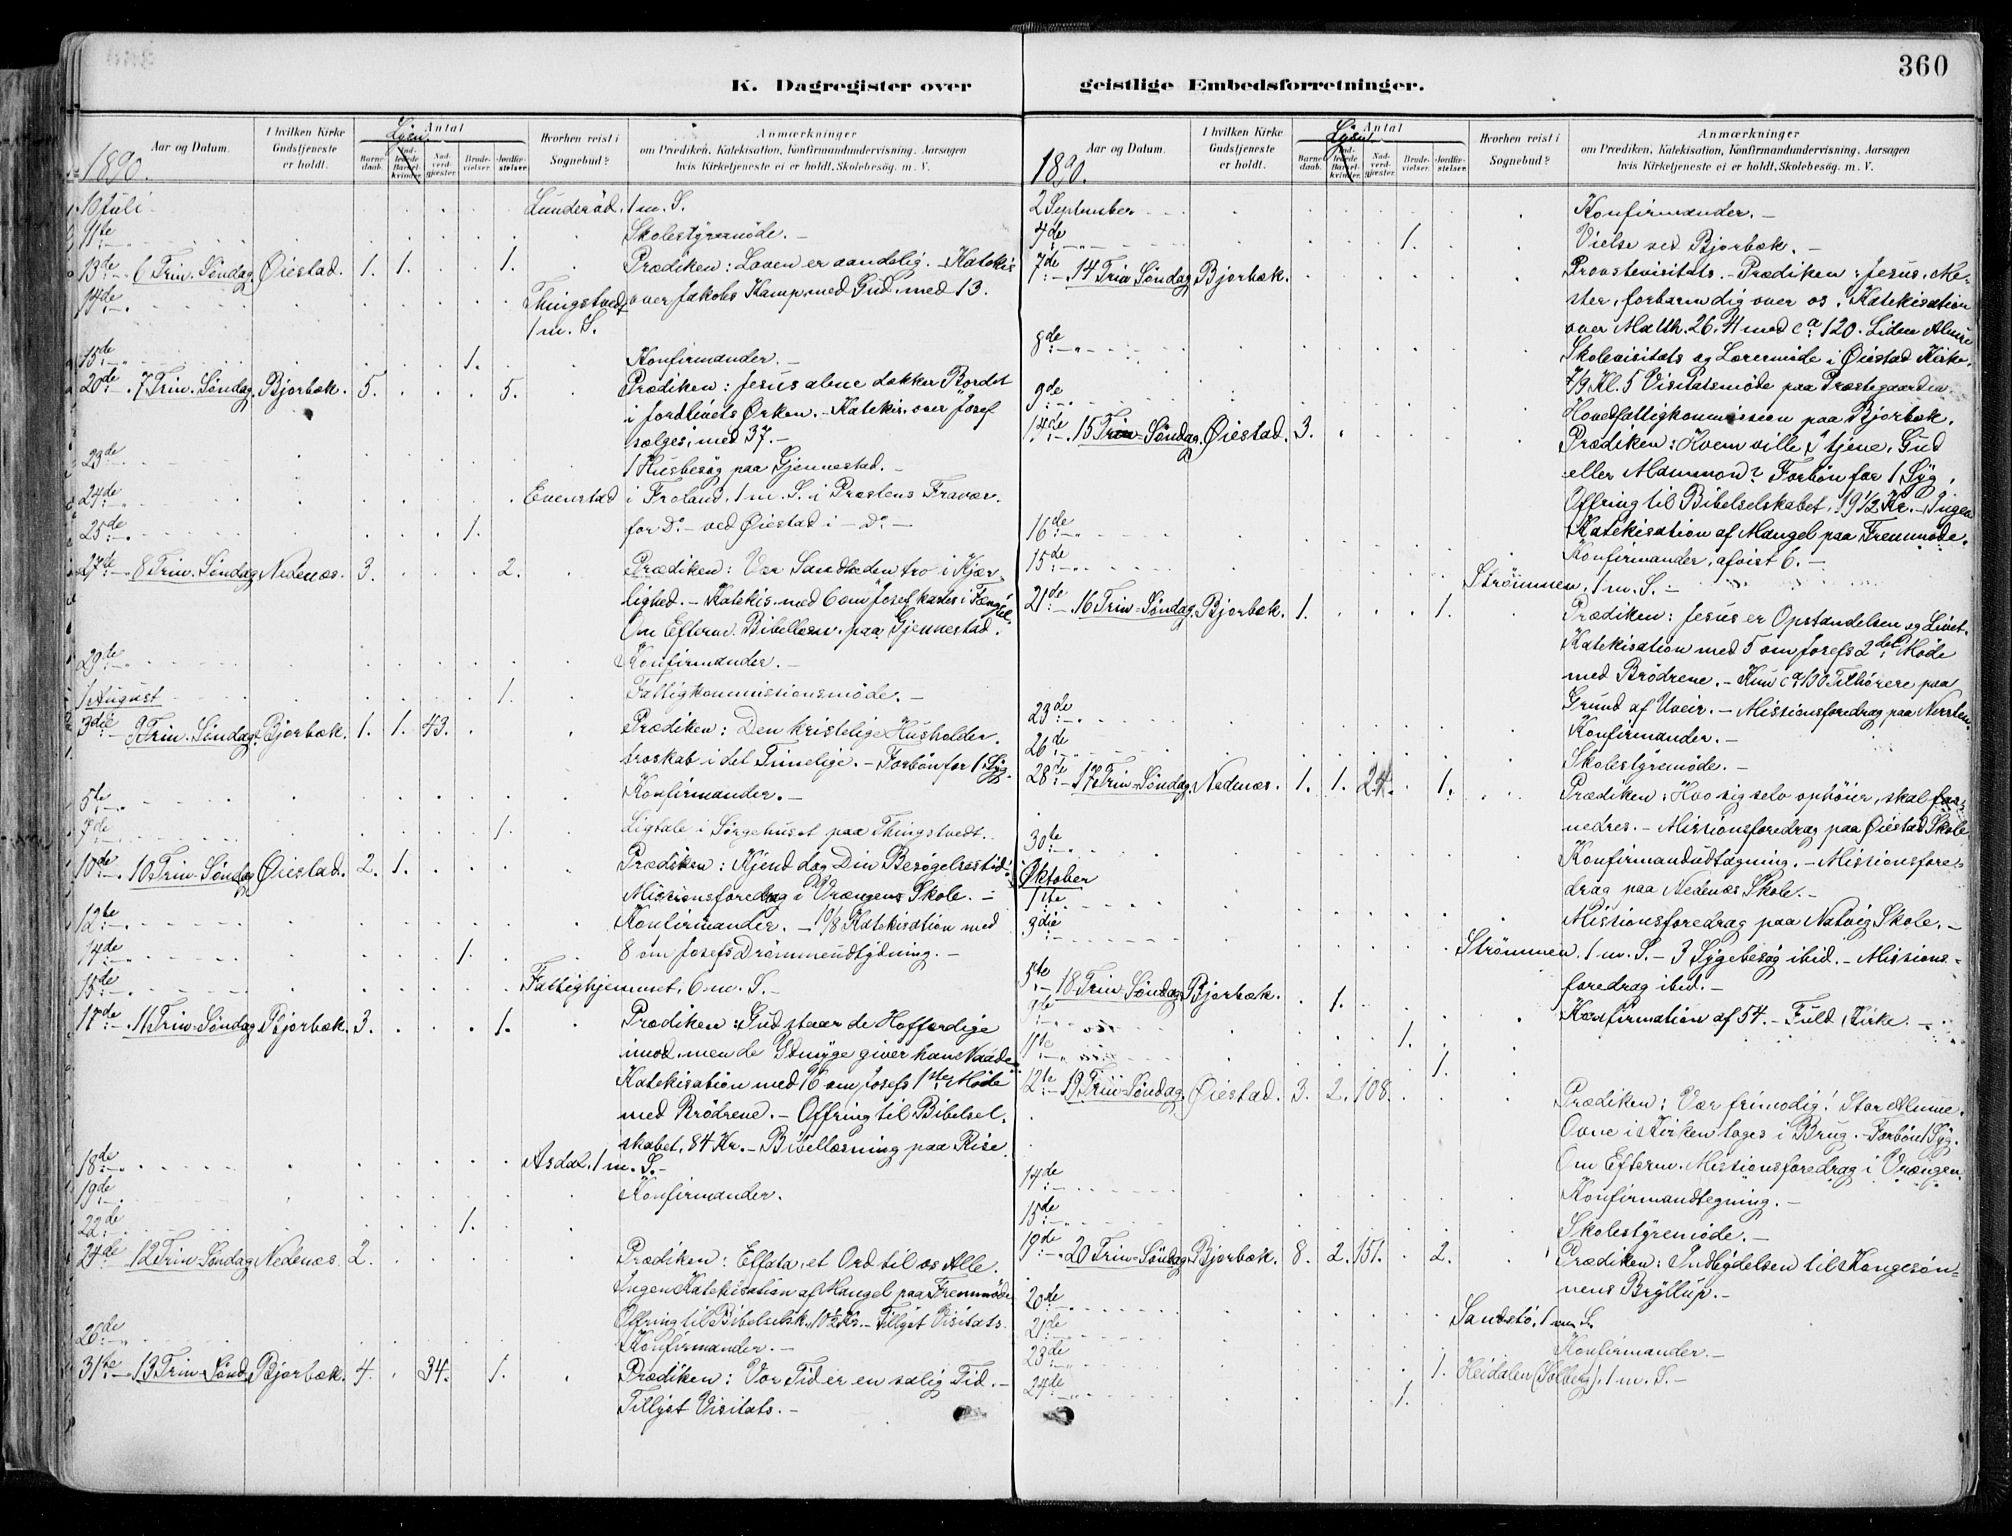 360
K. Dagregister over geistlige Embedsforretninger.
Aar og Datum. I hvilken Kirke Gudstjeneste er holdt. Antal Barnedaab. Nadverdgjester. Brudevielser. Jordfæstelser. Hvorhen reist i Sognebud? Anmærkninger om Prædiken, Katekisation, Konfirmandundervisning, Aarsagen hvis Kirketjeneste ei er holdt, Skolebesøg, m. V.
1890.
10 Juli Lunderød, 1 m. S.
11te Skolestyremøde. –
13de 6 Trin. Søndag, Øiestad. 1. 1. 1. Prædiken: Loven er aandelig. – Katekis.
14de Thingstvedt over Jakobs Kamp med Gud, med 13.
1 m. S.
15de 1. Konfirmander. –
20de 7 Trin. Søndag, Bjorbæk. 5. 5. Prædiken: Jesus alene dækker Bordet
i Jordlivets Ørken. – Katekis. over Josef
sælges, med 37. –
23de 1 Husbesøg paa Gjennestad. –
24de Evenstad i Froland, 1 m. S. i Præstens Fravær.
25de 1. for Do – ved Øiestad i – Do –
27de 8 Trin. Søndag, Nedenæs. 3. 2. Prædiken: Vær Sandheden tro i Kjær-
lighed. – Katekis. med 6 om Josef kastes i Fængsel.
Om Efterm. Bibellæsn. paa Gjennestad.
29te Konfirmander. –
1 August 1. Fattigkommissionsmøde. –
3die 9 Trin. Søndag, Bjorbæk. 1. 1. 43. Prædiken: Den kristelige Husholder-
troskab i det Timelige. – Forbøn for 1 Syg.
5te Konfirmander. –
7de 1. Ligtale i Sørgehuset paa Thingstvedt.
10de 10 Trin. Søndag, Øiestad. 2. 1. Prædiken: Kjend dog Din Besøgelsestid!
Missionsforedrag i Vrængens Skole. –
12te Konfirmander. – 10/8 Katekisation med
14de 1. 8 om Josefs Drømmeudtydning. –
15de Fattighjemmet, 6 m. S. –
17de 11 Trin. Søndag, Bjorbæk. 3. 1. Prædiken: Gud staar de Hoffærdige
imod, men de Ydmyge giver han Naade.
Katekisation med 16 om Josefs 1ste Møde
med Brødrene. – Offring til Bibelsel-
skabet, 84 Kr. – Bibellæsning paa Rise.
18de Asdal, 1 m. S. –
19de Konfirmander.
22de 1.
24de 12 Trin. Søndag, Nedenæs. 2. Prædiken: Effata, et Ord til os Alle.
Ingen Katekisation af Mangel paa Fremmøde.
Offring til Bibelselsk. 10½ Kr. – Tillyst Visitats.
26de Konfirmander. –
31te 13 Trin. Sønd. Bjorbæk. 4. 34. 1. Prædiken: Vor Tid er en salig Tid. –
Tillyst Visitats. –
Aar og Datum. I hvilken Kirke Gudstjeneste er holdt. Antal Barnedaab. Nadverdgjester. Brudevielser. Jordfæstelser. Hvorhen reist i Sognebud? Anmærkninger om Prædiken, Katekisation, Konfirmandundervisning, Aarsagen hvis Kirketjeneste ei er holdt, Skolebesøg, m. V.
1890.
2 September Konfirmander. –
4de 1. Vielse ved Bjorbæk. –
7de 14 Trin. Søndag, Bjorbæk. Provstevisitats. – Prædiken: Jesus, Me-
ster, forbarm dig over os! Katekisation
over Matth. 26. 41 med ca 120. Liden Almue
8de Skolevisitats og Lærermøde i Øiestad Kirke.
7/9 Kl. 5 Visitatsmøde paa Præstegaarden.
9de Hovedfattigkommission paa Bjorbæk.
14de 15 Trin. Søndag, Øiestad. 3. Prædiken: Hvem ville I tjene, Gud
eller Mammon? Forbøn for 1 Syg.
Offring til Bibelselskabet, 19 1/2 Kr. – Ingen
16de Katekisation af Mangel paa Fremmøde.
15de Konfirmander, afvist 6. –
Strømmen, 1 m. S. –
21de 16 Trin. Søndag, Bjorbæk. 1. 1. Prædiken: Jesus er Opstandelsen og Livet.
Katekisation med 5 om Josefs 2det Møde
med Brødrene. – Kun ca 130 Tilhørere paa
23de Grund af Uveir. – Missionsforedrag paa
26de Konfirmander. –
Skolestyremøde. –
28de 17 Trin. Søndag, Nedenæs. 1. 1. 24. 1. Prædiken: Hvo sig selv ophøier, skal for-
nedres. – Missionsforedrag paa Øiestad Skole
30te Konfirmandudtagning. – Missionsfore-
Oktober drag paa Nedenæs Skole. –
1ste Missionsforedrag paa Natvig Skole. –
3die Strømmen, 1 m. S. – 3 Sygebesøg ibid. – Missions-
foredrag ibid. –
5te 18 Trin. Søndag, Bjorbæk. 1. Konfirmation af 54. – Fuld Kirke. –
9de 1.
11te 1.
12te 19 Trin. Søndag, Øiestad. 3. 2. 108. Prædiken: Vær frimodig! Stor Almue.
Ovne i Kirken toges i Brug. – Forbøn 1 Syg.
14de Om Efterm. Missionsforedrag i Vrængen.
Konfirmandtegning. –
15de Skolestyremøde. –
19de 20 Trin. Søndag, Bjorbæk. 8. 2. 151. 2. Prædiken: Indbydelsen til Kongesøn-
nens Bryllup. –
20de
21de Sandstø, 1 m. S.
23de Konfirmander. –
24de 1. 1. Heidalen (Solberg), 1 m. S. –